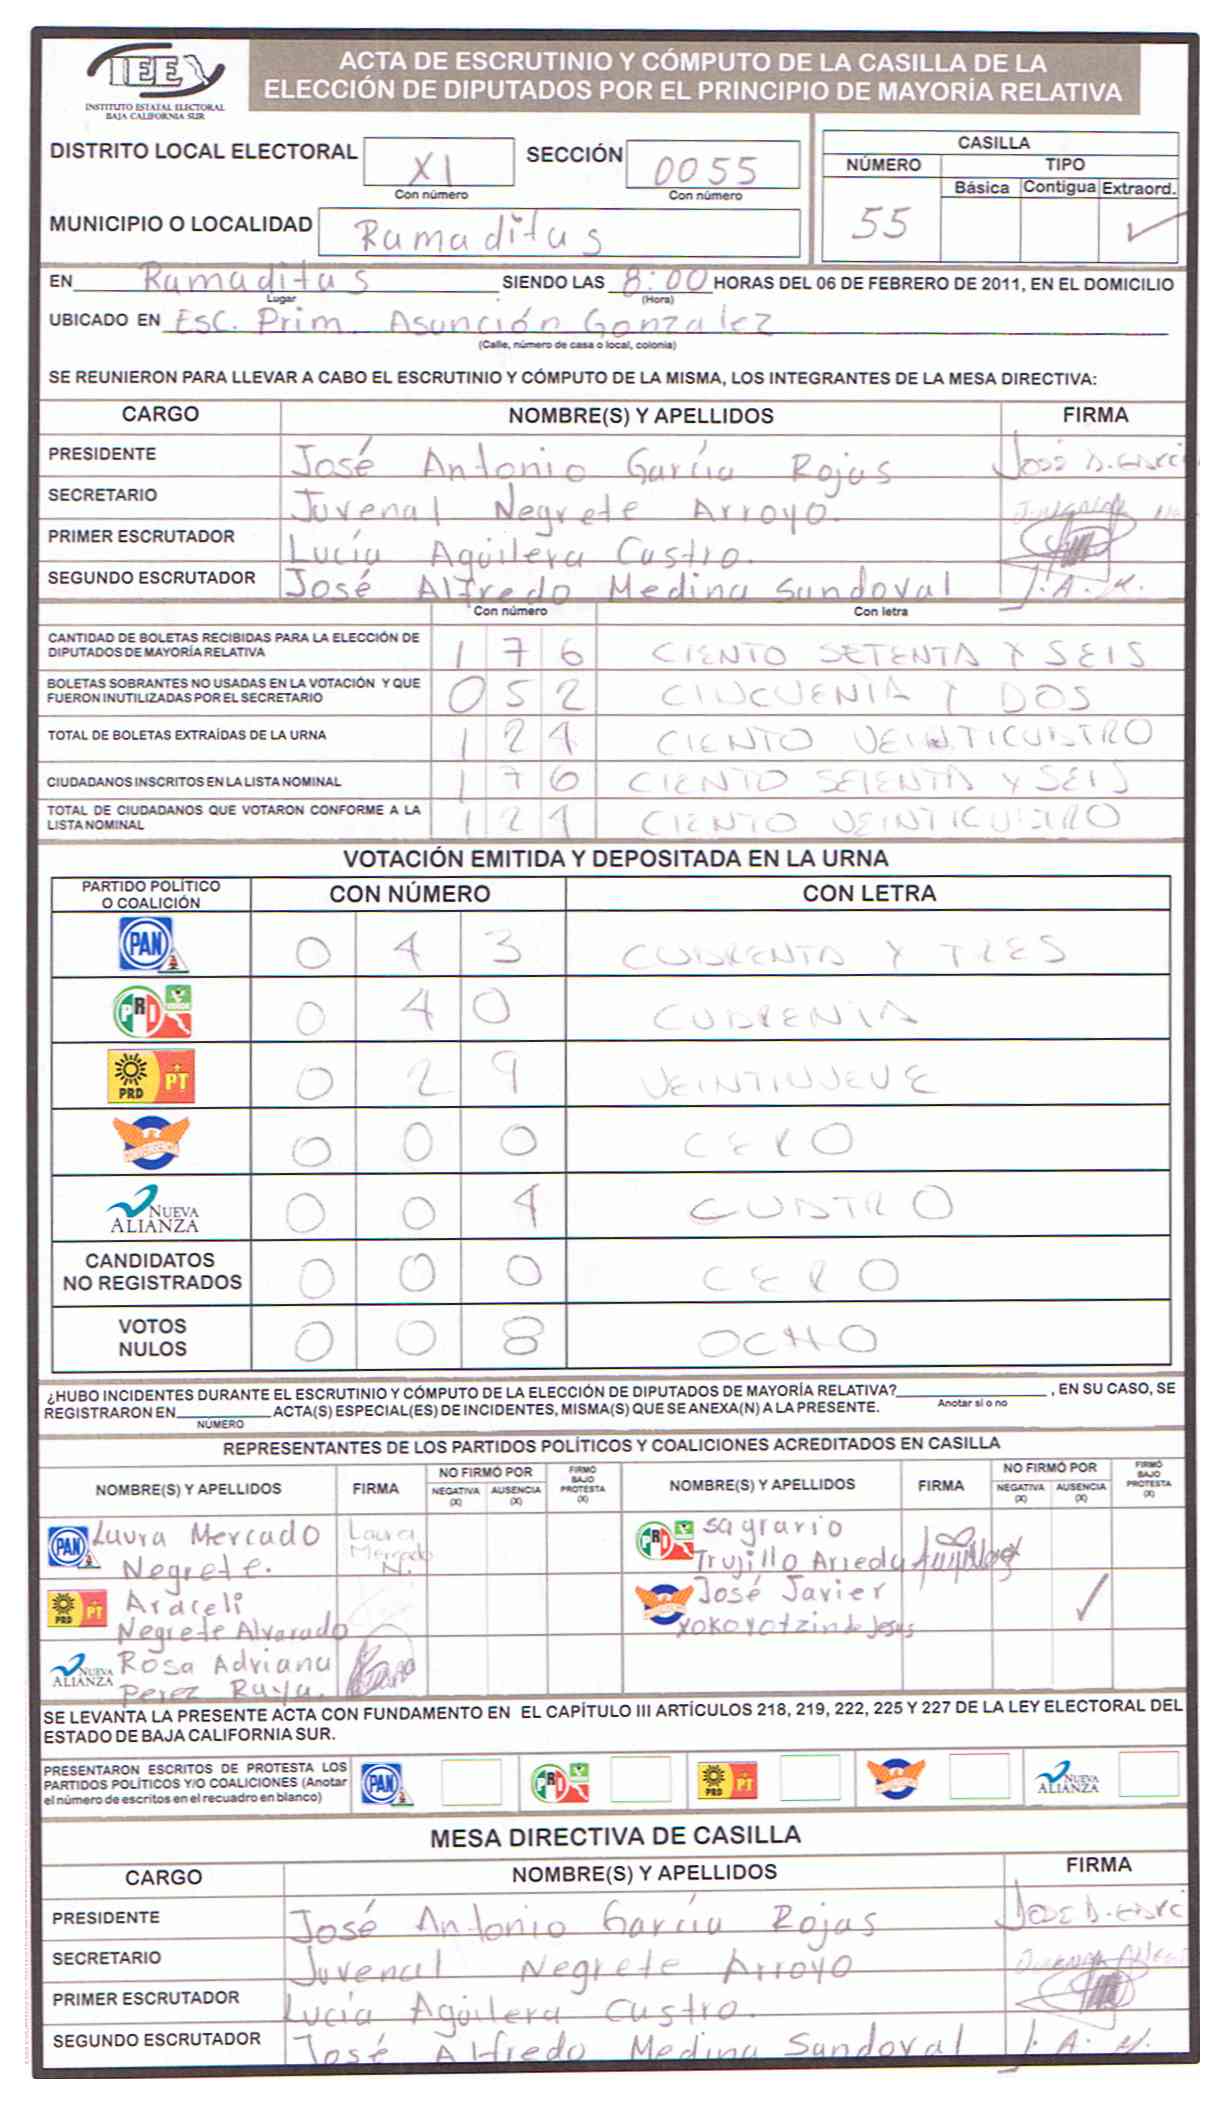 IEE
INSTITUTO ESTATAL ELECTORAL
BAJA CALIFORNIA SUR
ACTA DE ESCRUTINIO Y CÓMPUTO DE LA CASILLA DE LA
ELECCIÓN DE DIPUTADOS POR EL PRINCIPIO DE MAYORÍA RELATIVA
DISTRITO LOCAL ELECTORAL XI SECCIÓN 0055
Con número Con número
MUNICIPIO O LOCALIDAD Ramaditas
CASILLA
NÚMERO TIPO
Básica Contigua Extraord.
55 ✓
EN Ramaditas SIENDO LAS 8:00 HORAS DEL 06 DE FEBRERO DE 2011, EN EL DOMICILIO
Lugar (Hora)
UBICADO EN Esc. Prim. Asunción Gonzalez
(Calle, número de casa o local, colonia)
SE REUNIERON PARA LLEVAR A CABO EL ESCRUTINIO Y CÓMPUTO DE LA MISMA, LOS INTEGRANTES DE LA MESA DIRECTIVA:
CARGO NOMBRE(S) Y APELLIDOS FIRMA
PRESIDENTE José Antonio García Rojas
SECRETARIO Juvenal Negrete Arroyo.
PRIMER ESCRUTADOR Lucía Aguilera Castro.
SEGUNDO ESCRUTADOR José Alfredo Medina Sandoval J. A. M.
Con número Con letra
CANTIDAD DE BOLETAS RECIBIDAS PARA LA ELECCIÓN DE
DIPUTADOS DE MAYORÍA RELATIVA 1 7 6 CIENTO SETENTA Y SEIS
BOLETAS SOBRANTES NO USADAS EN LA VOTACIÓN Y QUE
FUERON INUTILIZADAS POR EL SECRETARIO 0 5 2 CINCUENTA Y DOS
TOTAL DE BOLETAS EXTRAÍDAS DE LA URNA 1 2 4 CIENTO VEINTICUATRO
CIUDADANOS INSCRITOS EN LA LISTA NOMINAL 1 7 6 CIENTO SETENTA Y SEIS
TOTAL DE CIUDADANOS QUE VOTARON CONFORME A LA
LISTA NOMINAL 1 2 4 CIENTO VEINTICUATRO
VOTACIÓN EMITIDA Y DEPOSITADA EN LA URNA
PARTIDO POLÍTICO
O COALICIÓN CON NÚMERO CON LETRA
PAN 0 4 3 CUARENTA Y TRES
PRI 0 4 0 CUARENTA
PRD PT 0 2 9 VEINTINUEVE
CONVERGENCIA 0 0 0 CERO
NUEVA ALIANZA 0 0 4 CUATRO
CANDIDATOS
NO REGISTRADOS 0 0 0 CERO
VOTOS
NULOS 0 0 8 OCHO
¿HUBO INCIDENTES DURANTE EL ESCRUTINIO Y CÓMPUTO DE LA ELECCIÓN DE DIPUTADOS DE MAYORÍA RELATIVA? , EN SU CASO, SE
Anotar sí o no
REGISTRARON EN ACTA(S) ESPECIAL(ES) DE INCIDENTES, MISMA(S) QUE SE ANEXA(N) A LA PRESENTE.
NÚMERO
REPRESENTANTES DE LOS PARTIDOS POLÍTICOS Y COALICIONES ACREDITADOS EN CASILLA
NOMBRE(S) Y APELLIDOS FIRMA NO FIRMÓ POR NEGATIVA (X) AUSENCIA (X) FIRMÓ BAJO PROTESTA (X) NOMBRE(S) Y APELLIDOS FIRMA NO FIRMÓ POR NEGATIVA (X) AUSENCIA (X) FIRMÓ BAJO PROTESTA (X)
PAN Laura Mercado Laura Mercado N. PRI sagrario
Negrete. Trujillo Arredu
PRD PT Araceli José Javier ✓
Negrete Alvarado
NUEVA ALIANZA Rosa Adriana
Perez Raya.
SE LEVANTA LA PRESENTE ACTA CON FUNDAMENTO EN EL CAPÍTULO III ARTÍCULOS 218, 219, 222, 225 Y 227 DE LA LEY ELECTORAL DEL
ESTADO DE BAJA CALIFORNIA SUR.
PRESENTARON ESCRITOS DE PROTESTA LOS
PARTIDOS POLÍTICOS Y/O COALICIONES (Anotar
el número de escritos en el recuadro en blanco)
PAN PRI PRD PT NUEVA ALIANZA
MESA DIRECTIVA DE CASILLA
CARGO NOMBRE(S) Y APELLIDOS FIRMA
PRESIDENTE José Antonio García Rojas
SECRETARIO Juvenal Negrete Arroyo
PRIMER ESCRUTADOR Lucía Aguilera Castro.
SEGUNDO ESCRUTADOR José Alfredo Medina Sandoval J. A. M.